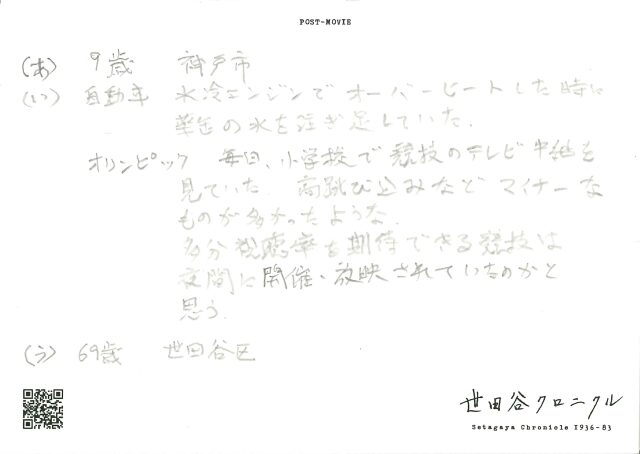 POST-MOVIE
(あ) 9歳 神戸市
(い) 自動車 水冷エンジンでオーバーヒートした時に
薬缶の水を注ぎ足していた.
オリンピック 毎日、小学校で競技のテレビ中継を
見ていた. 高跳び込みなどマイナーな
ものが多かったような.
多分視聴率を期待できる競技は
夜間に開催・放映されていたのかと
思う.
(う) 69歳 世田谷区
世田谷クロニクル
Setagaya Chronicle 1936-83